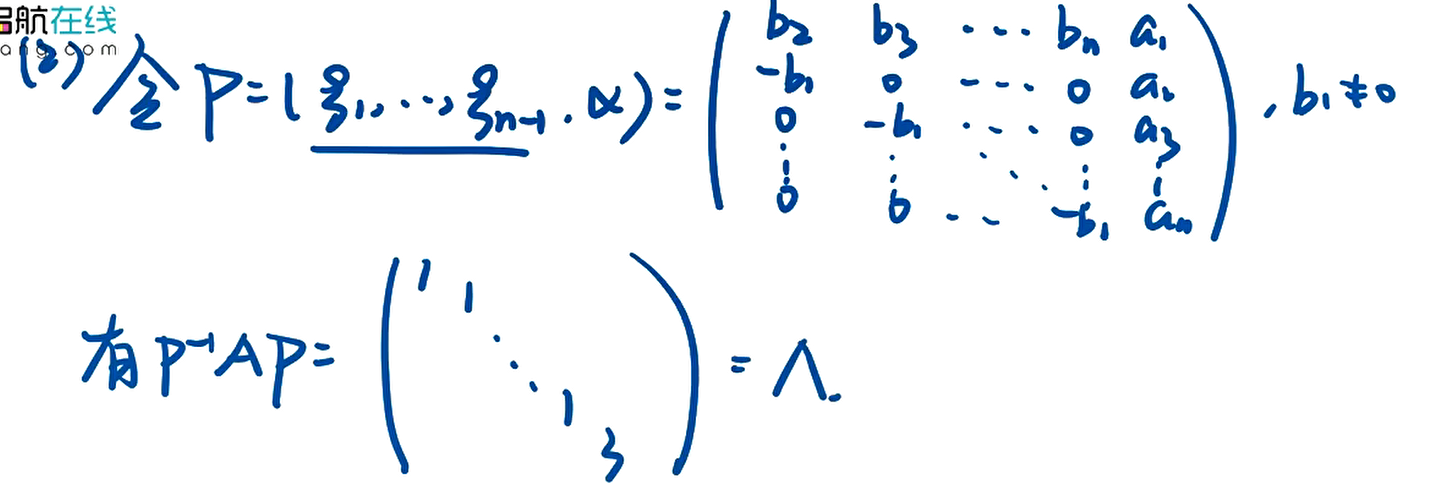 启航在线
(2) 令 P=(ξ₁,…,ξₙ₋₁,α)=
b₂ b₃ … bₙ a₁
-b₁ 0 … 0 a₂
0 -b₁ … 0 a₃
⋮ ⋮ ⋱ ⋮ ⋮
0 0 … -b₁ aₙ
, b₁≠0
有 P⁻¹AP=
1
1
⋱
1
3
=Λ.